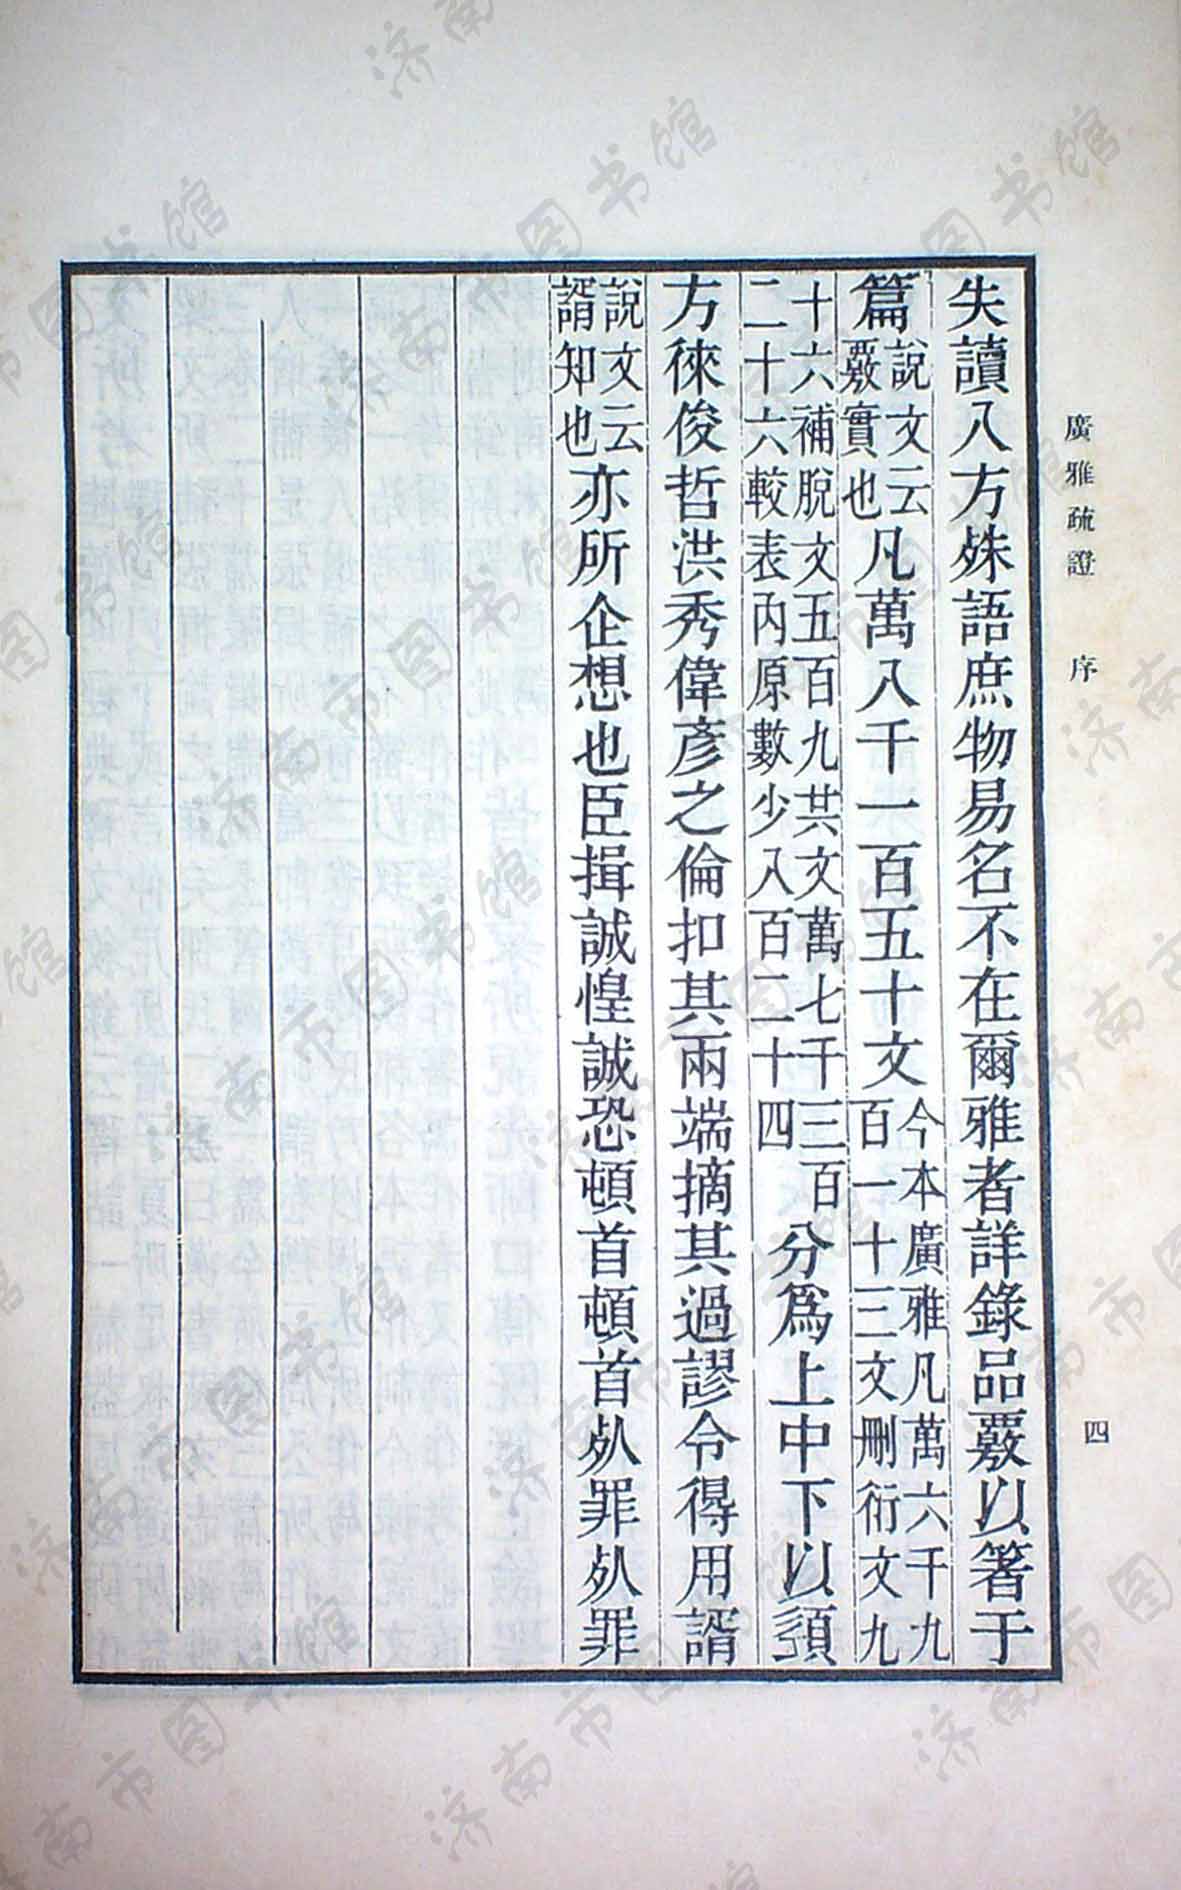 廣雅疏證 序 四
失讀八方殊語庶物易名不在爾雅者詳錄品覈以箸于
篇說文云覈實也凡萬八千一百五十文今本廣雅凡萬六千九百一十三文刪衍文九
十六補脫文五百九共文萬七千三百二十六較表內原數少八百二十四分爲上中下以須
方徠俊哲洪秀偉彥之倫扣其兩端摘其過謬令得用諝
說文云諝知也亦所企想也臣揖誠惶誠恐頓首頓首死罪死罪
济南市图书馆